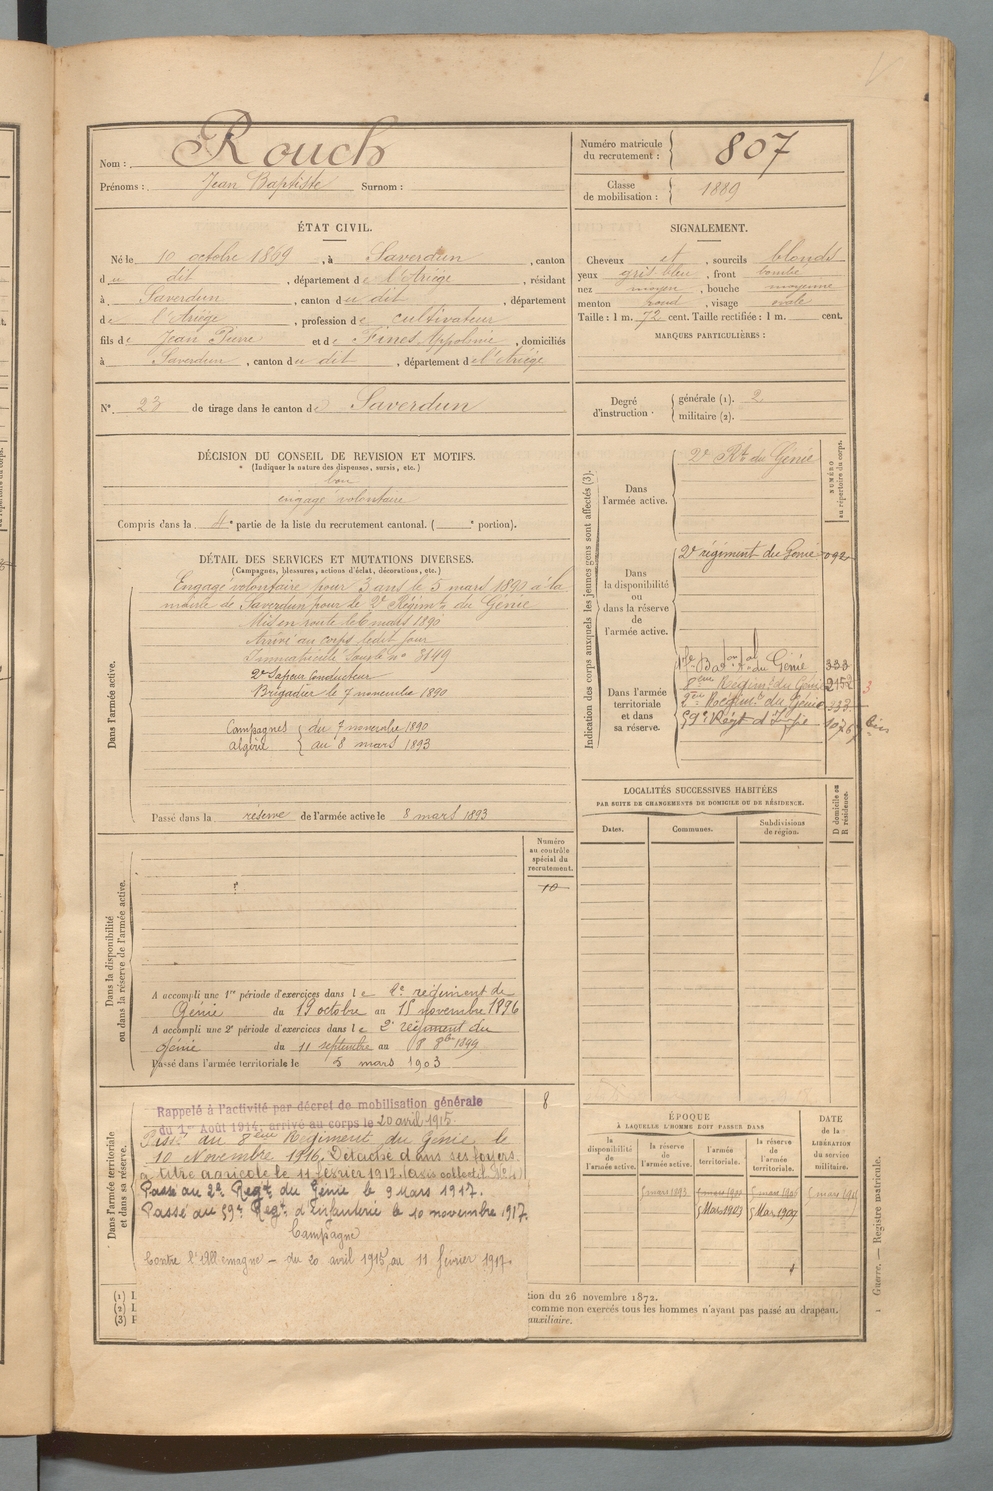 Nom : Rouch
Prénoms : Jean Baptiste Surnom :
Numéro matricule du recrutement : 807
Classe de mobilisation : 1889
ÉTAT CIVIL.
Né le 10 octobre 1869, à Saverdun, canton
du dit, département de l'Ariége, résidant
à Saverdun, canton du dit, département
de l'Ariége, profession de cultivateur
fils de Jean Pierre et de Fines Appolonie, domiciliés
à Saverdun, canton du dit, département de l'Ariége
SIGNALEMENT.
Cheveux et, sourcils blonds
yeux gris bleu, front bombé
nez moyen, bouche moyenne
menton rond, visage ovale
Taille : 1 m. 72 cent. Taille rectifiée : 1 m. cent.
MARQUES PARTICULIÈRES :
N° 23 de tirage dans le canton de Saverdun
Degré d'instruction. générale (1). 2
militaire (2).
DÉCISION DU CONSEIL DE REVISION ET MOTIFS.
(Indiquer la nature des dispenses, sursis, etc.)
bon
engagé volontaire
Compris dans la 4e partie de la liste du recrutement cantonal. ( e portion).
DÉTAIL DES SERVICES ET MUTATIONS DIVERSES.
(Campagnes, blessures, actions d'éclat, décorations, etc.)
Dans l'armée active.
Engagé volontaire pour 3 ans le 5 mars 1890 à la
mairie de Saverdun pour le 2e Régimt du Génie
Mis en route le 6 mars 1890
Arrivé au corps ledit jour
Immatriculé sous le n° 3149
2e Sapeur Conducteur
Brigadier le 7 novembre 1890
Campagnes du 7 novembre 1890
algérie au 8 mars 1893
Passé dans la réserve de l'armée active le 8 mars 1893
Dans la disponibilité
ou dans la réserve de l'armée active.
Numéro au contrôle spécial du recrutement.
10
A accompli une 1re période d'exercices dans le 2e régiment de
Génie du 19 octobre au 15 novembre 1896
A accompli une 2e période d'exercices dans le 2e régiment du
Génie du 11 septembre au 8 8bre 1899
Passé dans l'armée territoriale le 5 mars 1903
Dans l'armée territoriale
et dans sa réserve.
8
Rappelé à l'activité par décret de mobilisation générale
du 1er Août 1914, arrivé au corps le 20 avril 1915.
Passé au 8ème Régiment du Génie le
10 Novembre 1916. Détaché dans ses foyers
titre agricole le 11 février 1917.
Passé au 2e Regt du Génie le 9 Mars 1917.
Passé au 59e Regt d'Infanterie le 10 novembre 1917.
Campagne
Contre l'Allemagne - du 20 avril 1915 au 11 février 1917.
Indication des corps auxquels les jeunes gens sont affectés (3).
NUMÉRO au répertoire du corps.
Dans l'armée active.
2e Rt du Génie
Dans la disponibilité ou dans la réserve de l'armée active.
2e régiment du Génie 092
Dans l'armée territoriale et dans sa réserve.
du Génie 333
8eme Régimt du Génie 2152
2me Régimt du Génie 333
59e Régt d'Infie
LOCALITÉS SUCCESSIVES HABITÉES
PAR SUITE DE CHANGEMENTS DE DOMICILE OU DE RÉSIDENCE.
Dates.
Communes.
Subdivisions de région.
D domicile ou R résidence.
ÉPOQUE
À LAQUELLE L'HOMME DOIT PASSER DANS
la disponibilité de l'armée active.
la réserve de l'armée active.
l'armée territoriale.
la réserve de l'armée territoriale.
DATE de la LIBÉRATION du service militaire.
5 mars 1893
5 Mars 1903
5 Mar 1909
(1) I.
(2) L
(3) F
tion du 26 novembre 1872.
comme non exercés tous les hommes n'ayant pas passé au drapeau.
auxiliaire.
1 Guerre. — Registre matricule.